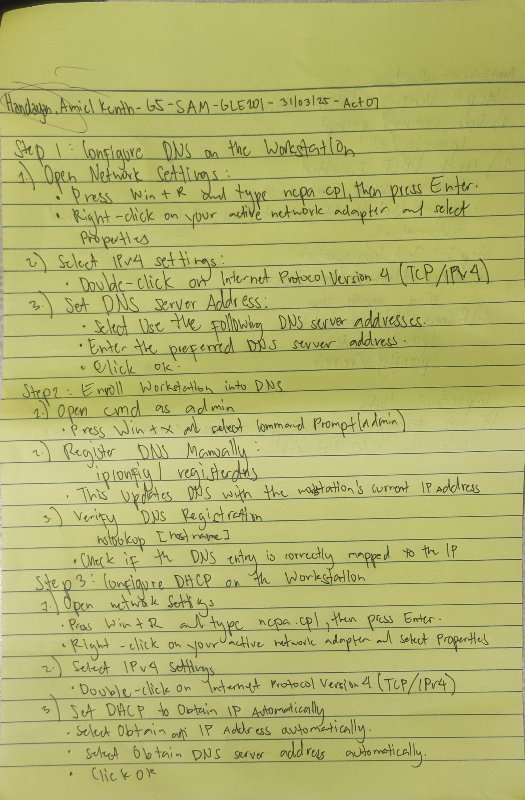 Handayan, Amiel Kenth - G5 - SAM - GLE201 - 31/03/25 - Act 07
Step 1 : Configure DNS on the Workstation
1.) Open Network Settings :
• Press Win + R and type ncpa.cpl, then press Enter.
• Right-click on your active network adapter and select
Properties
2.) Select IPv4 settings :
• Double-click on Internet Protocol Version 4 (TCP/IPv4)
3.) Set DNS server Address :
• Select Use the following DNS server addresses.
• Enter the preferred DNS server address.
• Click ok.
Step 2 : Enroll Workstation into DNS
1.) Open cmd as admin
• Press Win + X and select Command Prompt (admin)
2.) Register DNS Manually :
ipconfig / registerdns
• This updates DNS with the workstation's current IP Address
3.) Verify DNS Registration
nslookup [hostname]
• Check if the DNS entry is correctly mapped to the IP
Step 3 : Configure DHCP on the Workstation
1.) Open network settings
• Press Win + R and type ncpa.cpl, then press Enter.
• Right-click on your active network adapter and select Properties
2.) Select IPv4 Settings
• Double-click on Internet Protocol Version 4 (TCP/IPv4)
3.) Set DACP to Obtain IP Automatically
• Select Obtain an IP Address automatically.
• Select Obtain DNS server address automatically.
• Click OK